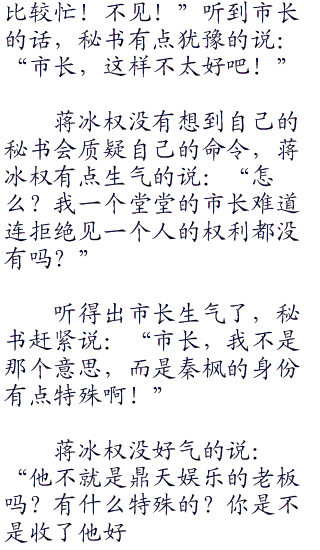 比较忙！不见！”听到市长
的话，秘书有点犹豫的说：
“市长，这样不太好吧！”
蒋冰权没有想到自己的
秘书会质疑自己的命令，蒋
冰权有点生气的说：“怎
么？我一个堂堂的市长难道
连拒绝见一个人的权利都没
有吗？”
听得出市长生气了，秘
书赶紧说：“市长，我不是
那个意思，而是秦枫的身份
有点特殊啊！”
蒋冰权没好气的说：
“他不就是鼎天娱乐的老板
吗？有什么特殊的？你是不
是收了他好